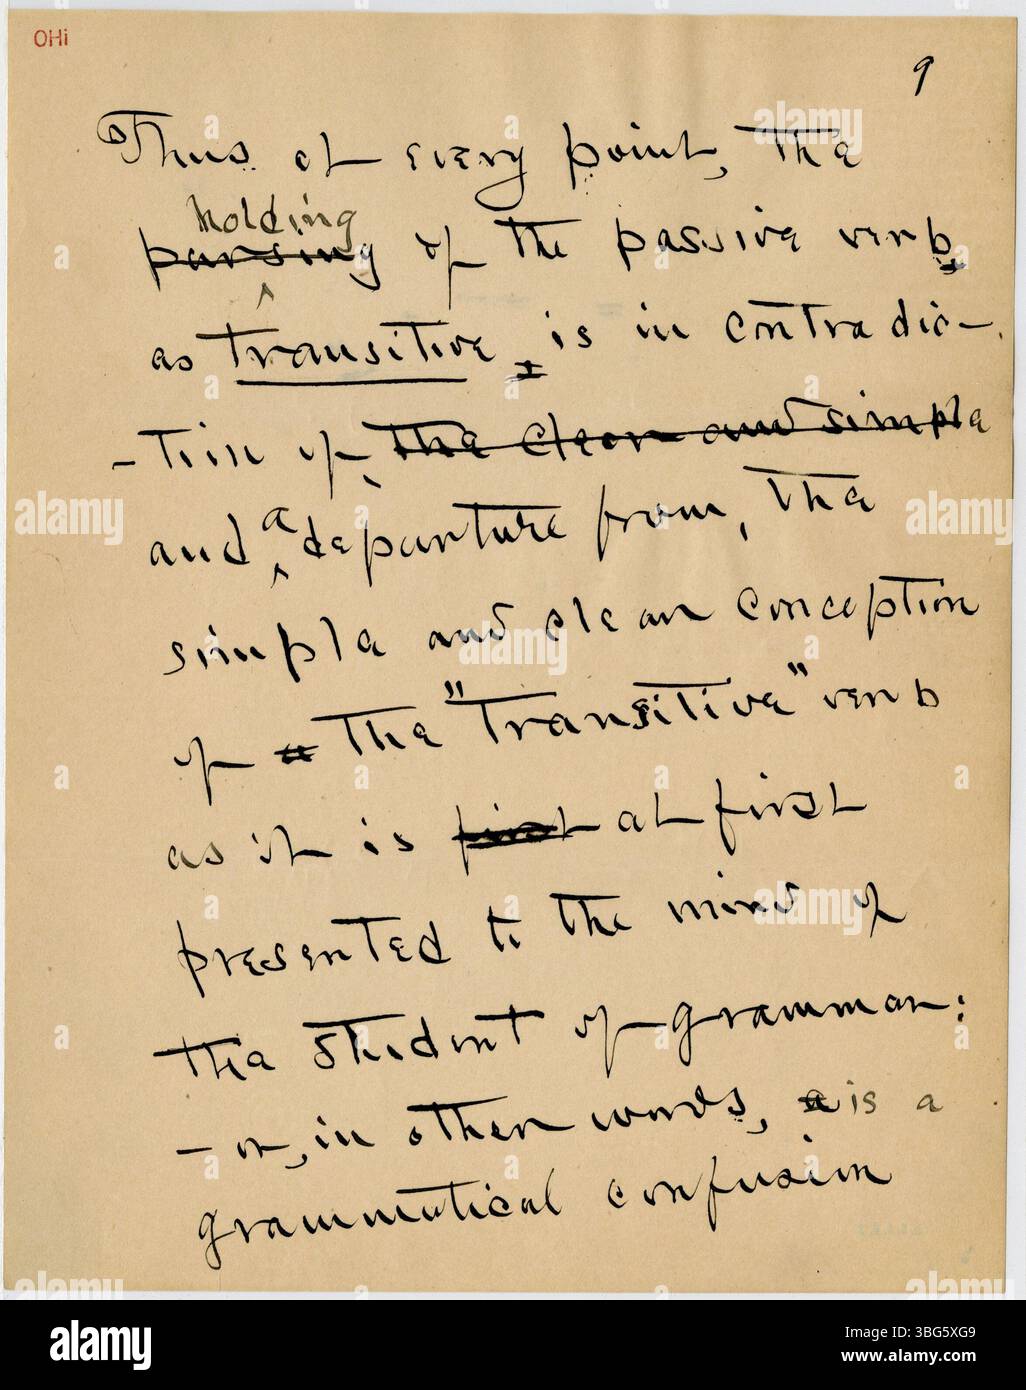 OHi
9
Thus at every point, the
holding
parsing of the passive verb,
as transitive, is in contradic-
-tion of the clear and simple
and a departure from, the
simple and clear conception
of a the "transitive" verb
as it is first at first
presented to the mind of
the student of grammar:
- or, in other words, a is a
grammatical confusion
alamy
Image ID: 3BG5XG9
www.alamy.com